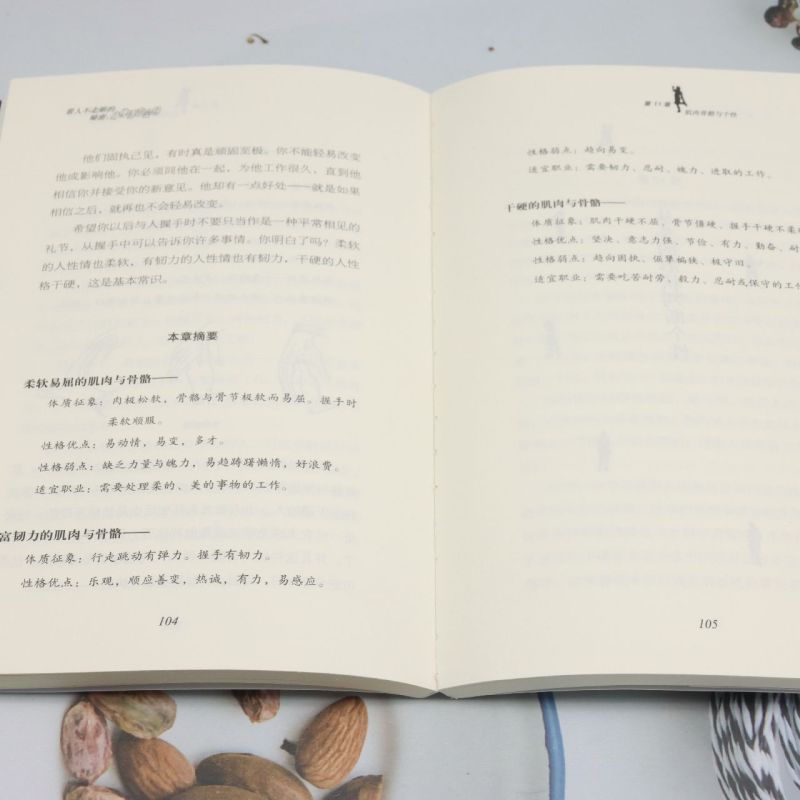 看人不走眼的
他们固执己见，有时真是顽固至极。你不能轻易改变
他或影响他。你必须同他在一起，为他工作很久，直到他
相信你并接受你的新意见。他却有一点好处——就是如果
相信之后，就再也不会轻易改变。
希望你以后与人握手时不要只当作是一种平常相见的
礼节，从握手中可以告诉你许多事情。你明白了吗？柔软
的人性情也柔软，有韧力的人性情也有韧力，干硬的人性
格干硬，这是基本常识。
本章摘要
柔软易屈的肌肉与骨骼——
体质征象：肉极松软，骨骼与骨节极软而易屈。握手时
柔软顺服。
性格优点：易动情，易变，多才。
性格弱点：缺乏力量与魄力，易趋踌躇懒惰，好浪费。
适宜职业：需要处理柔的、美的事物的工作。
富韧力的肌肉与骨骼——
体质征象：行走跳动有弹力。握手有韧力。
性格优点：乐观，顺应善变，热诚，有力，易感应。
104
第 11 章
肌肉骨骼与个性
性格弱点：趋向易变。
适宜职业：需要韧力、忍耐、魄力、进取的工作。
干硬的肌肉与骨骼——
体质征象：肌肉干硬不屈，骨节僵硬，握手干硬不柔
性格优点：坚决、意志力强、节俭、有力、勤奋、耐
性格弱点：趋向固执、倔犟褊狭、极守旧。
适宜职业：需要吃苦耐劳、毅力、忍耐或保守的工作
105